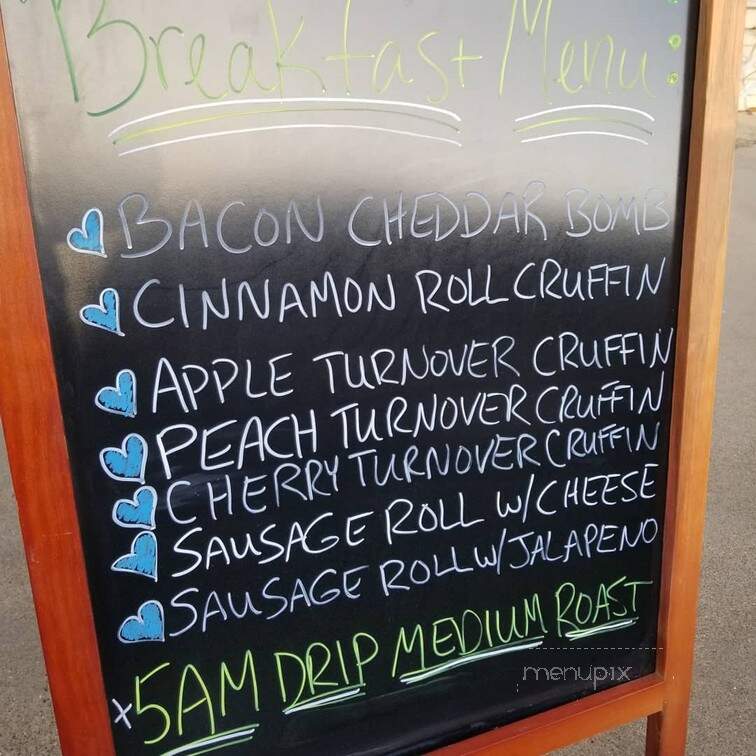 Breakfast Menu:
BACON CHEDDAR BOMB
CINNAMON ROLL CRUFFIN
APPLE TURNOVER CRUFFIN
PEACH TURNOVER CRUFFIN
CHERRY TURNOVER CRUFFIN
SAUSAGE ROLL W/CHEESE
SAUSAGE ROLL W/JALAPENO
x5AM DRIP MEDIUM ROAST
menupix